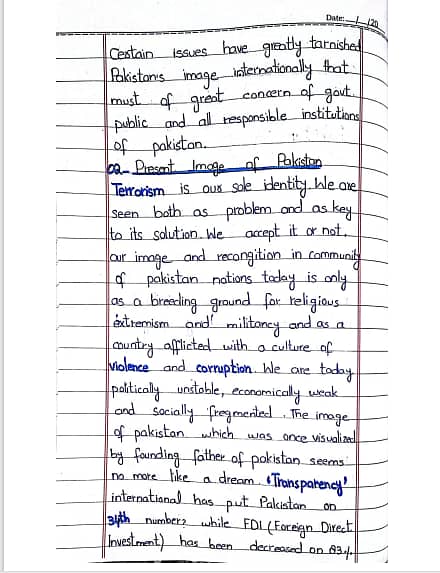 Date: / /20
Certain issues have greatly tarnished
Pakistan's image internationally that
must of great concern of govt.
public and all responsible institutions
of pakistan.
02- Present Image of Pakistan
Terrorism is our sole identity. We are
seen both as problem and as key
to its solution. We accept it or not,
our image and recongition in community
of pakistan nations today is only
as a breeding ground for religious
extremism and militancy and as a
country afflicted with a culture of
violence and corruption. We are today
politically unstable, economically weak
and socially fregmented. The image
of pakistan which was once visualized
by founding father of pakistan seems
no more like a dream. "Transparency'
international has put Pakistan on
34th number? while FDI (Foreign Direct
Investment) has been decreased on 83%.